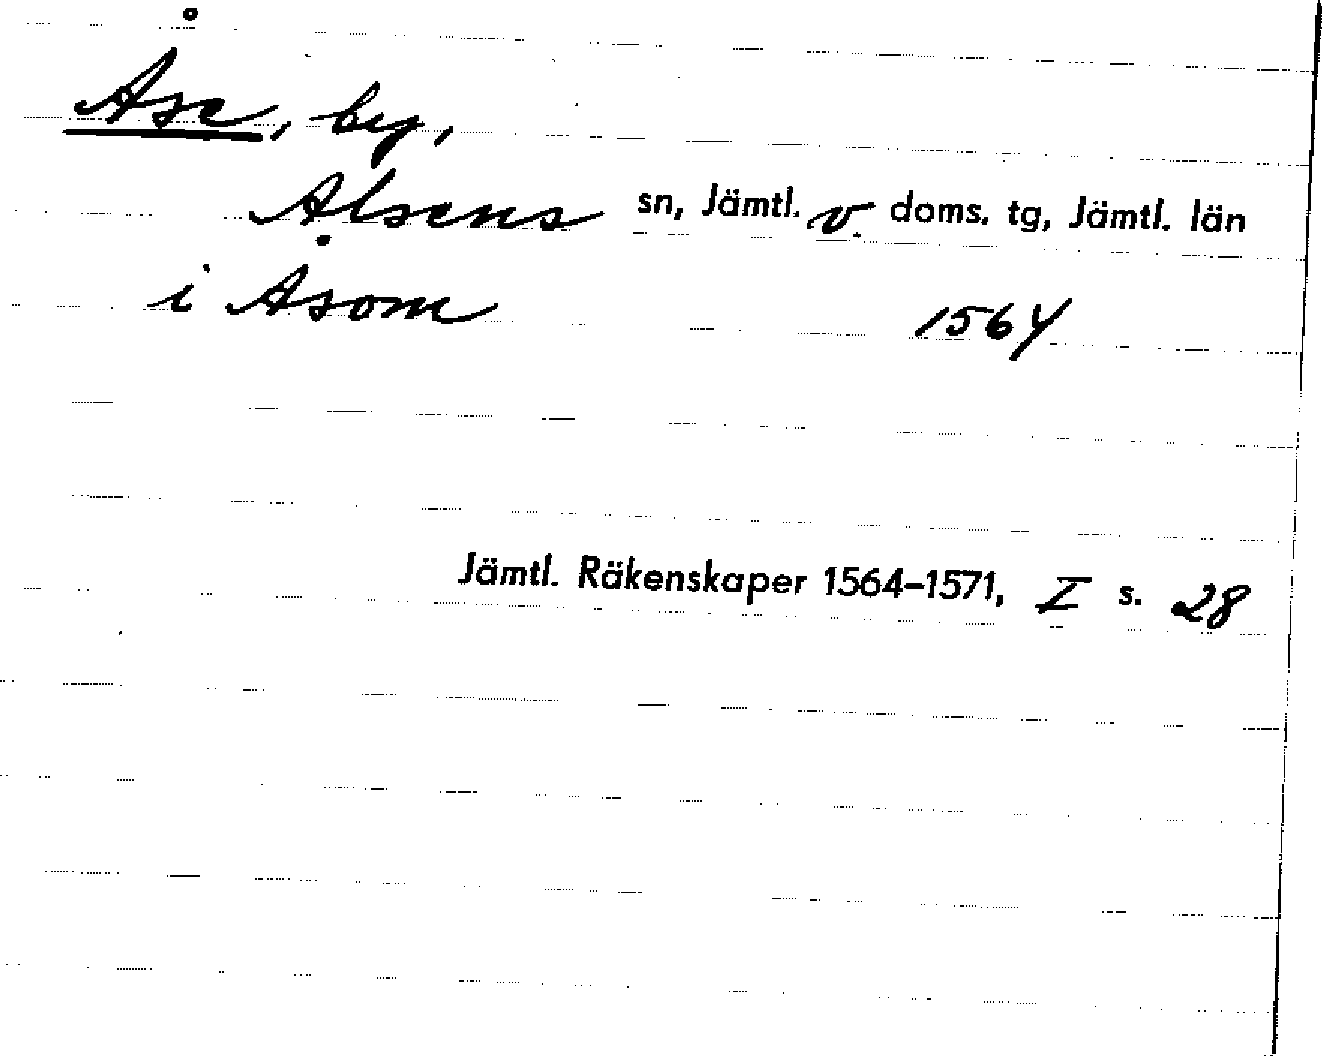 Åse, by,
Alsens sn, Jämtl. v. doms. tg, Jämtl. län
i Åsom 1564
Jämtl. Räkenskaper 1564–1571, I s. 28